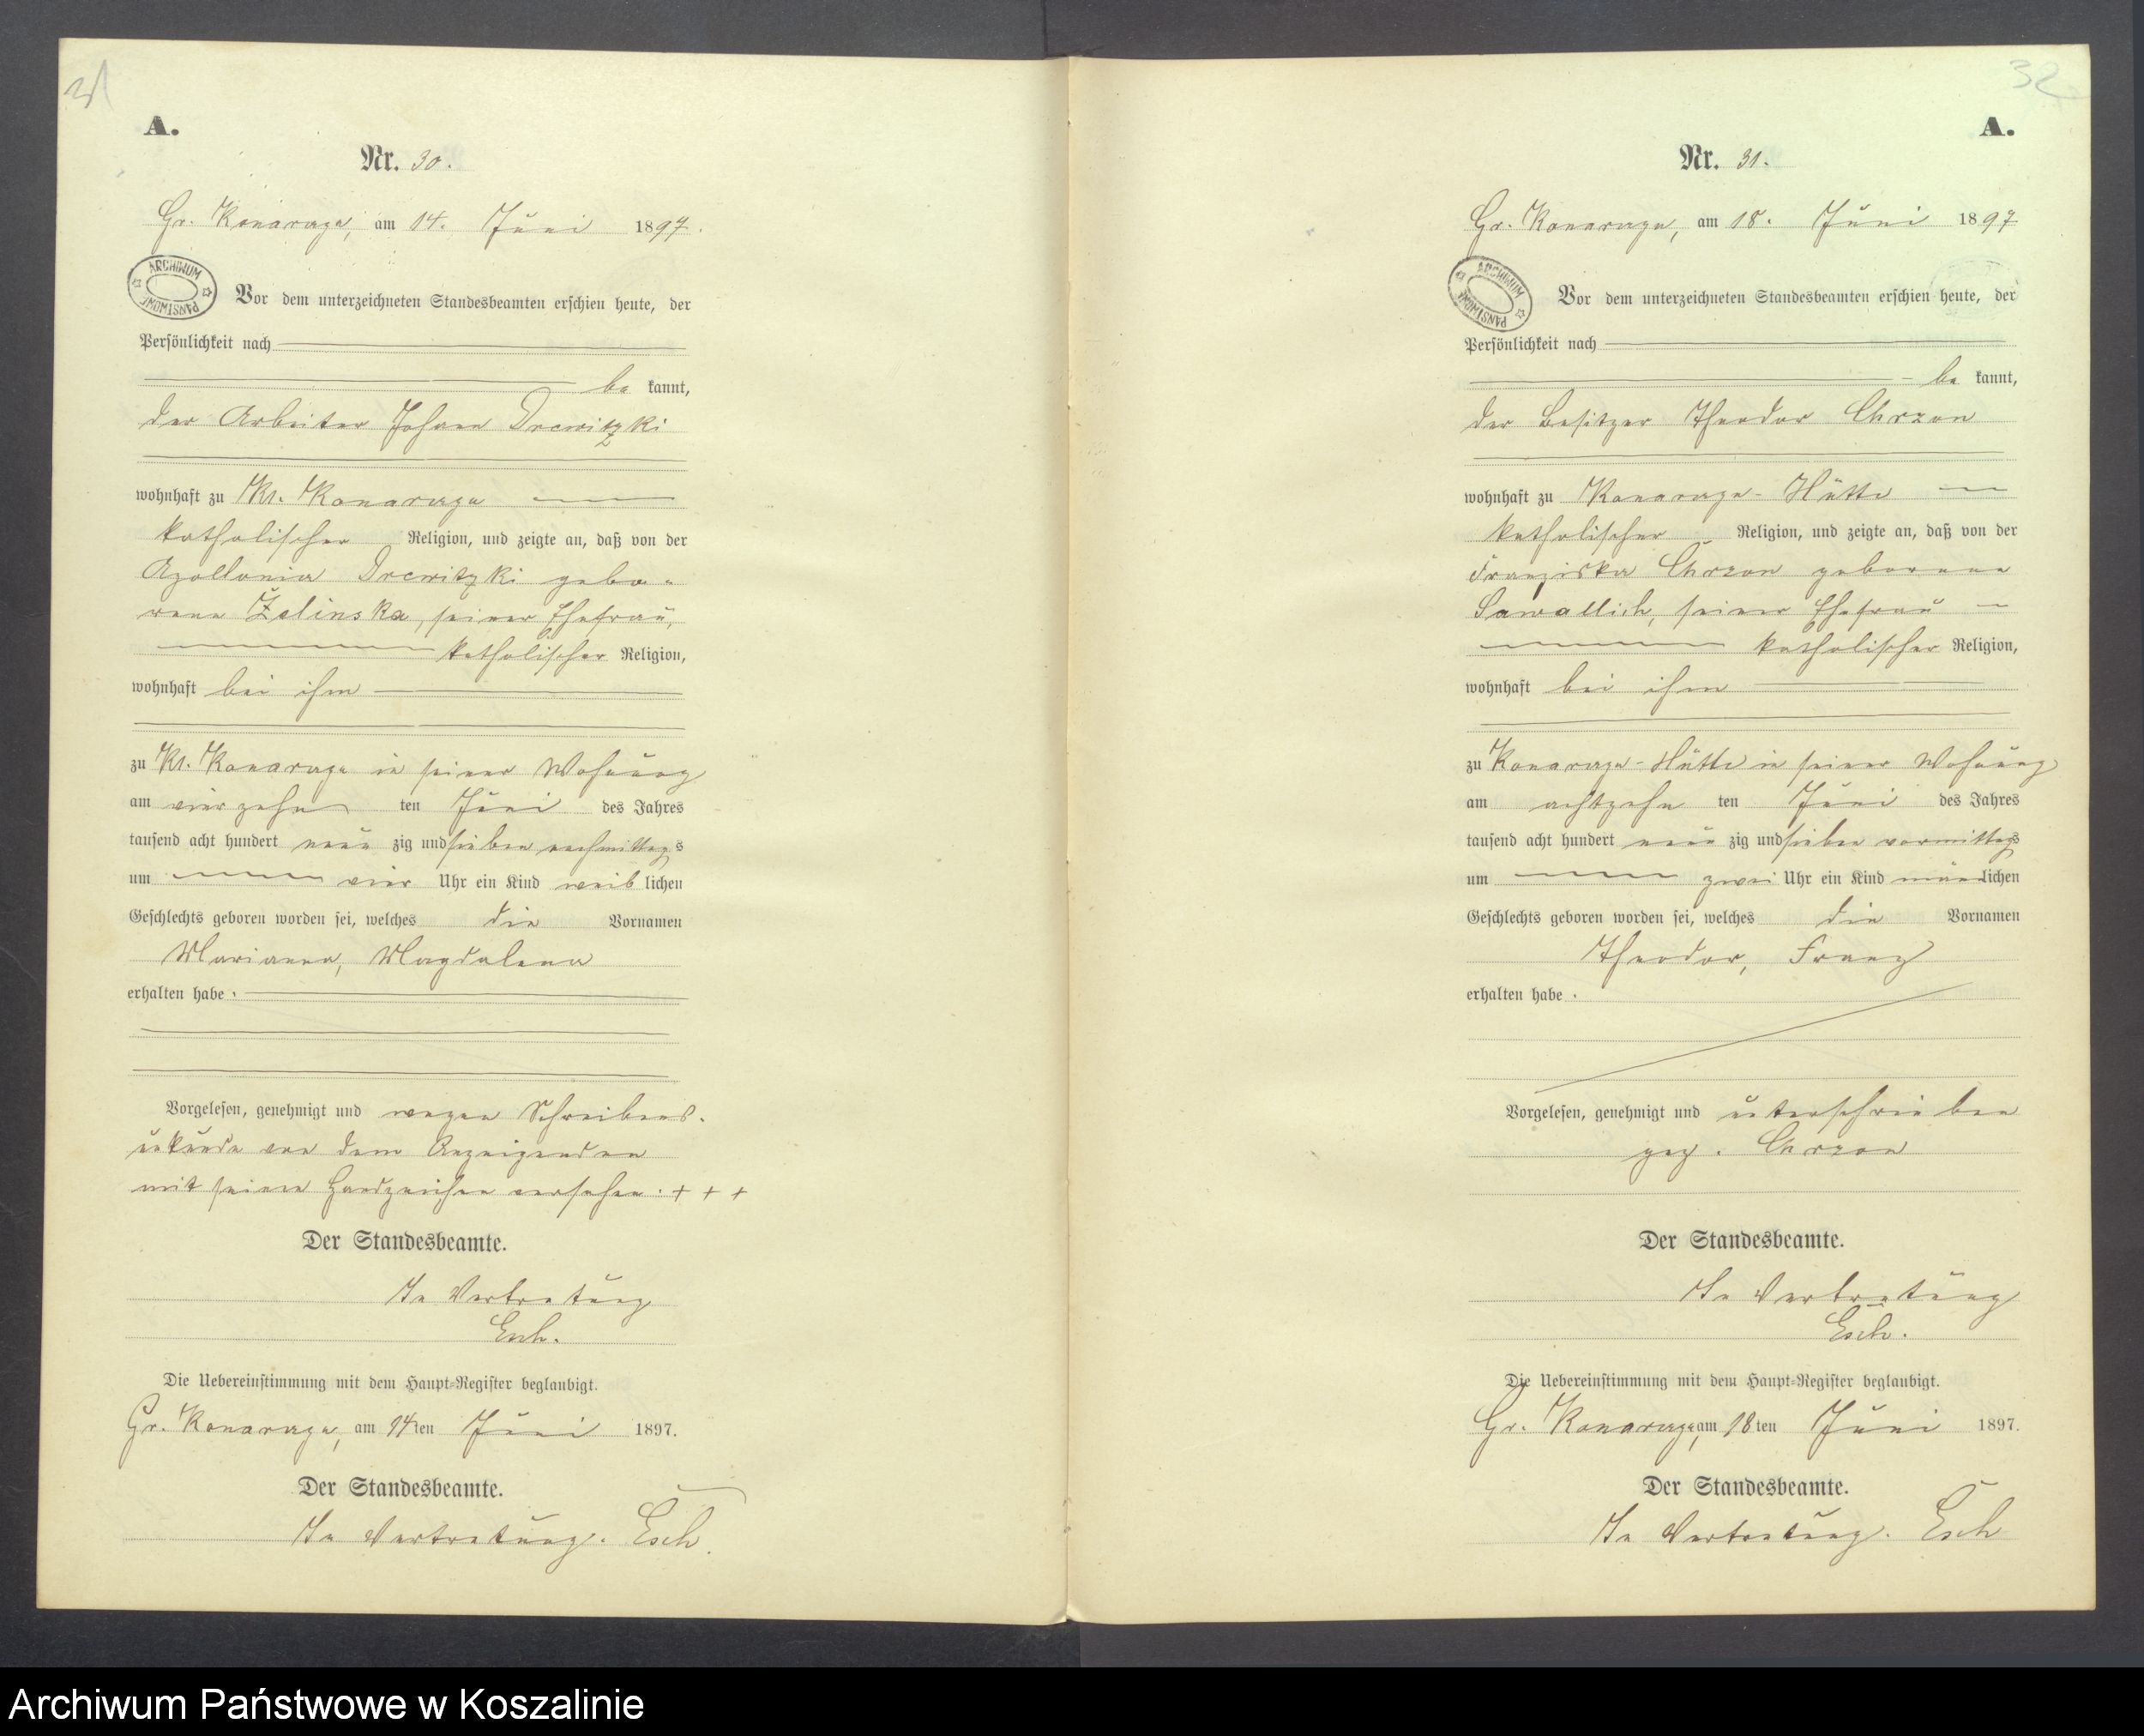 31
A.
Nr. 30.
Gr. Konarzyn, am 14. Juni 1897.
ARCHIWUM PAŃSTWOWE
Vor dem unterzeichneten Standesbeamten erschien heute, der
Persönlichkeit nach
be kannt,
der Arbeiter Johann Drewitzki
wohnhaft zu Kl. Konarzyn
katholischer Religion, und zeigte an, daß von der
Apollonia Drewitzki gebo-
rene Żelinska, seiner Ehefrau,
katholischer Religion,
wohnhaft bei ihm
zu Kl. Konarzyn in seiner Wohnung
am vierzehn ten Juni des Jahres
tausend acht hundert neun zig und sieben nachmittags
um vier Uhr ein Kind weib lichen
Geschlechts geboren worden sei, welches die Vornamen
Marianna, Magdalena
erhalten habe.
Vorgelesen, genehmigt und wegen Schreibens-
unkunde von dem Anzeigenden
mit seinem Handzeichen versehen. + + +
Der Standesbeamte.
In Vertretung
Esch.
Die Uebereinstimmung mit dem Haupt-Register beglaubigt.
Gr. Konarzyn, am 14ten Juni 1897.
Der Standesbeamte.
In Vertretung. Esch.
32
A.
Nr. 31.
Gr. Konarzyn, am 18. Juni 1897
ARCHIWUM PAŃSTWOWE
Vor dem unterzeichneten Standesbeamten erschien heute, der
Persönlichkeit nach
be kannt,
der Besitzer Theodor Chrzon
wohnhaft zu Konarzyn-Hütte
katholischer Religion, und zeigte an, daß von der
Franziska Chrzon geborene
Sawallich, seiner Ehefrau
katholischer Religion,
wohnhaft bei ihm
zu Konarzyn-Hütte in seiner Wohnung
am achtzehn ten Juni des Jahres
tausend acht hundert neun zig und sieben vormittags
um zwei Uhr ein Kind männlichen
Geschlechts geboren worden sei, welches die Vornamen
Theodor, Franz
erhalten habe.
Vorgelesen, genehmigt und unterschrieben
gez. Chrzon
Der Standesbeamte.
In Vertretung
Esch.
Die Uebereinstimmung mit dem Haupt-Register beglaubigt.
Gr. Konarzyn, am 18ten Juni 1897.
Der Standesbeamte.
In Vertretung. Esch
Archiwum Państwowe w Koszalinie